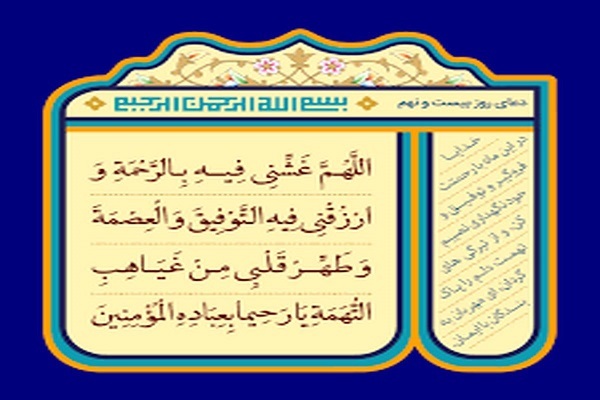 دعای روز بیست و نهم
بسم الله الرحمن الرحیم
اللَّهُمَّ غَشِّنِی فِیهِ بِالرَّحْمَةِ وَ
ارْزُقْنِی فِیهِ التَّوْفِیقَ وَالْعِصْمَةَ
وَ طَهِّرْ قَلْبِی مِنْ غَیَاهِبِ
التُّهَمَةِ یَا رَحِیما بِعِبَادِهِ الْمُؤْمِنِینَ
خدایا
در این ماه با رحمتت
فروگیر و توفیق و
خودنگهداری نصیبم
کن و از تیرگی های
تهمت دلم را پاک
گردان ای مهربان به
بندگان با ایمان